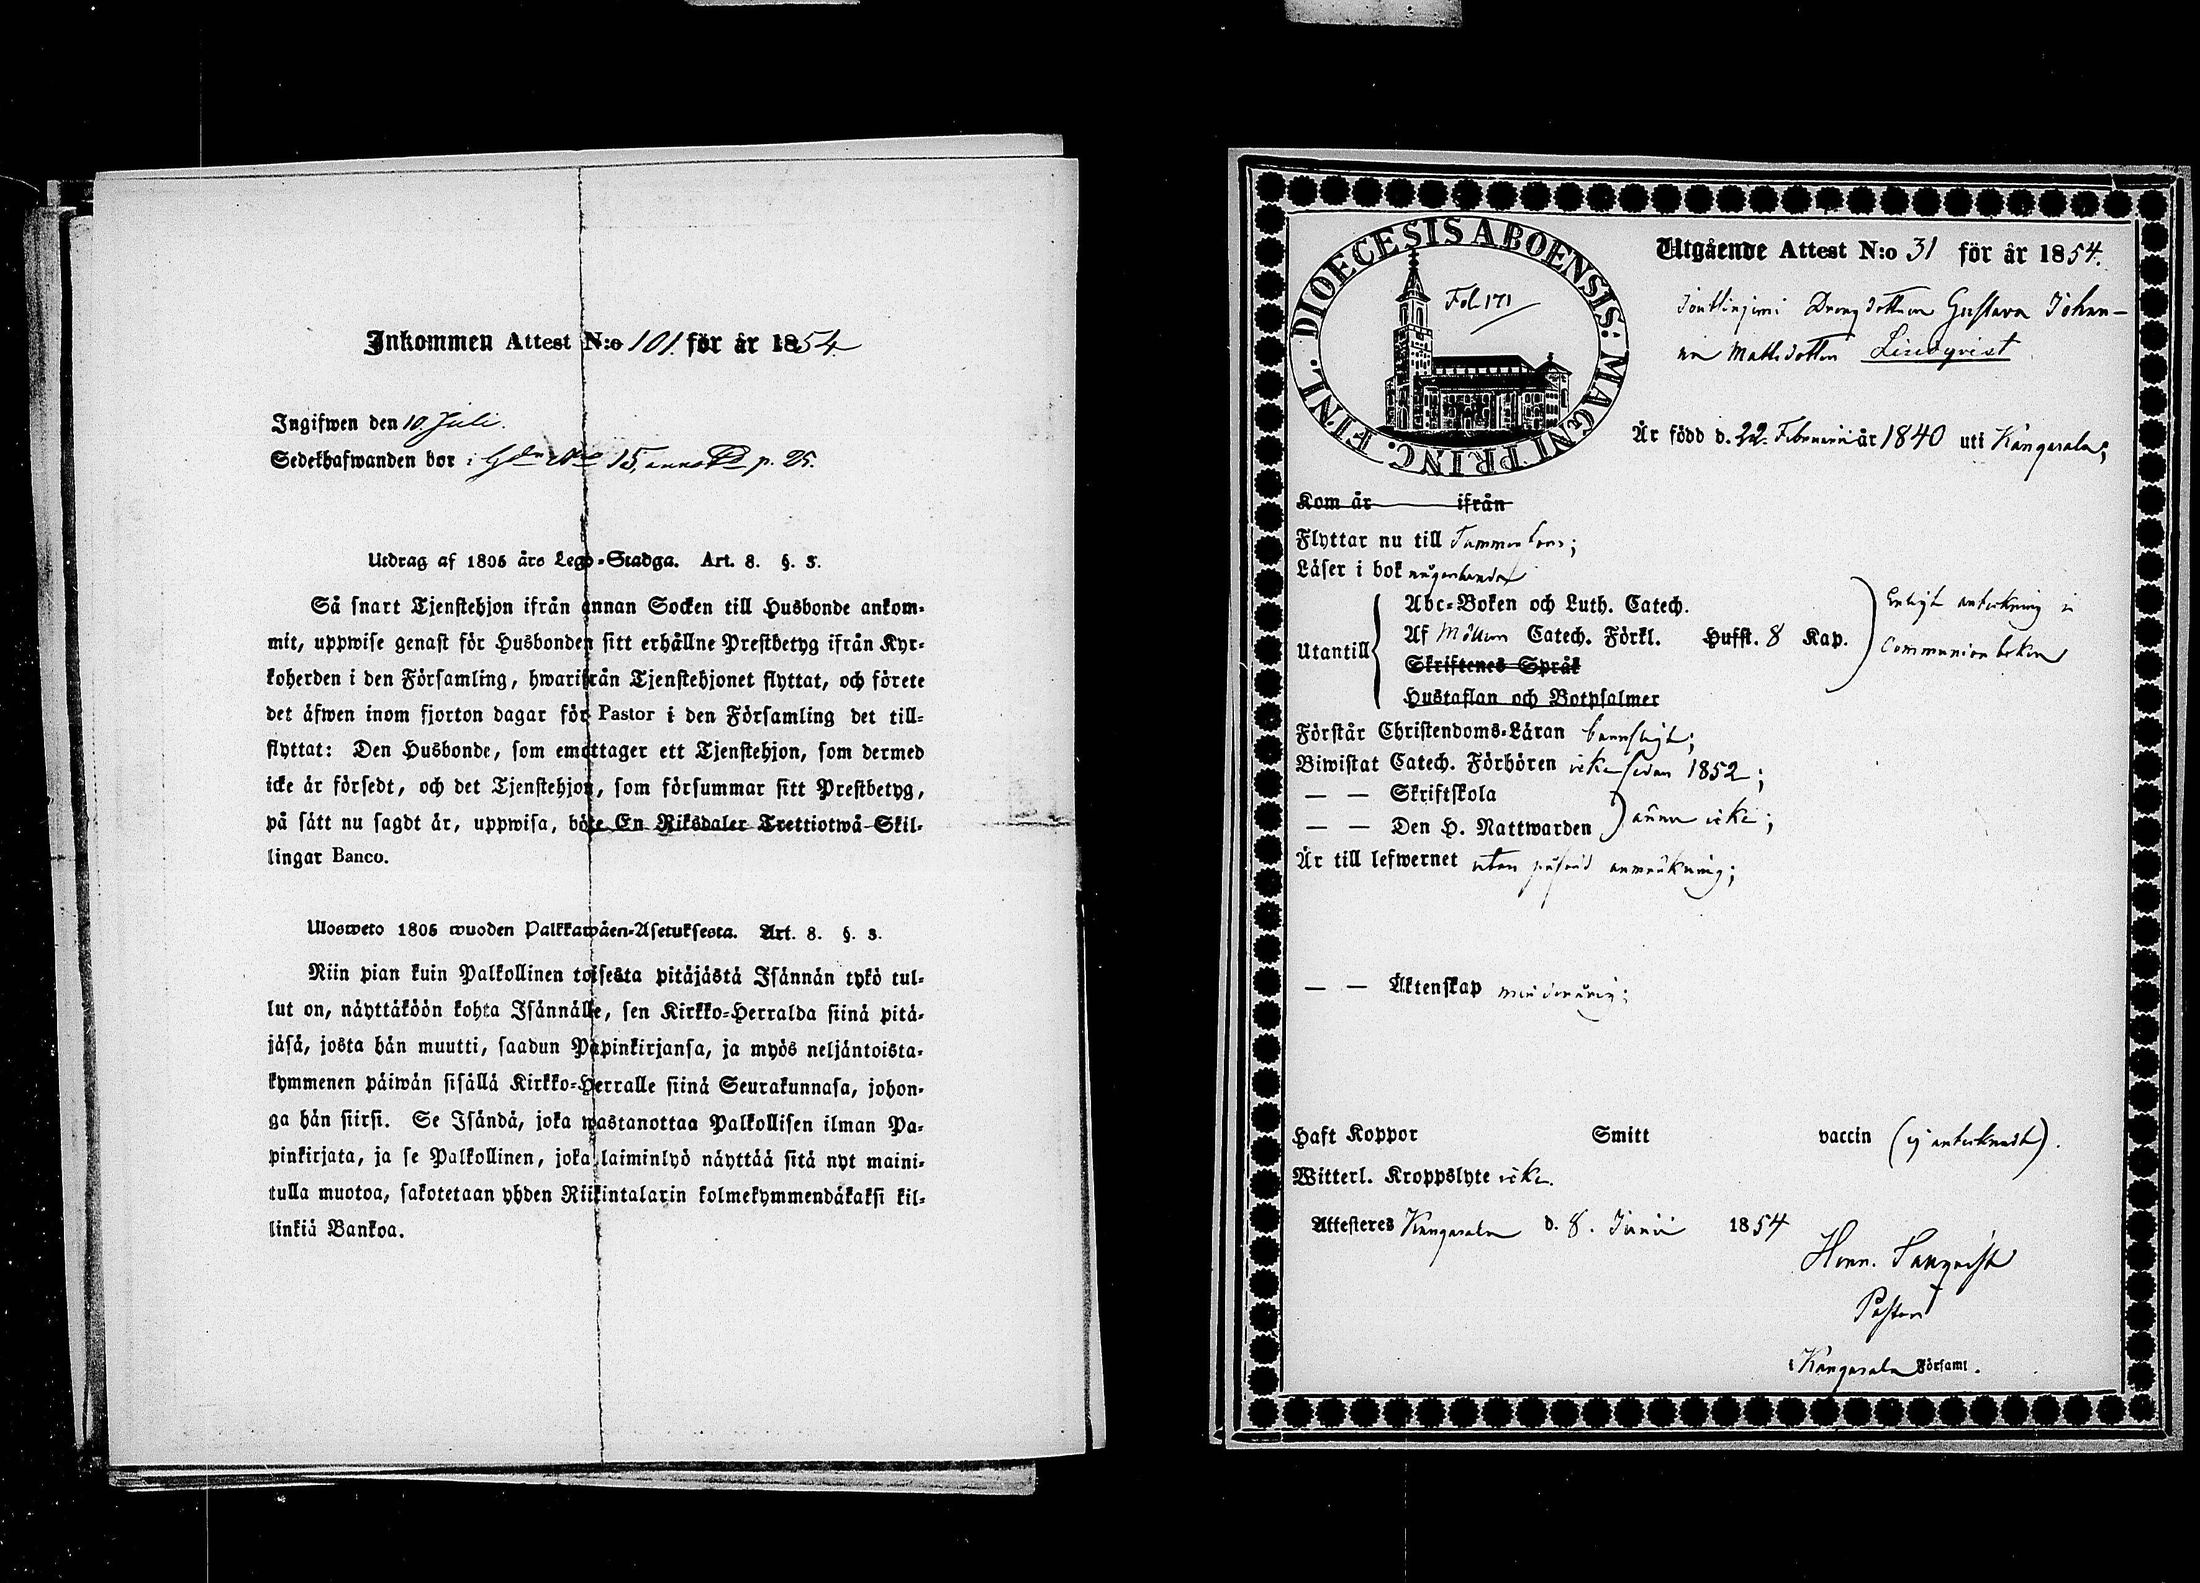 Inkommen Attest N:o 101. för år 1854.
Ingifwen den 10. Juli.
Sedelhafwanden bor i Gården N:o 15, p. 25.
Utdrag af 1805 års Lego-Stadga. Art. 8. §. 3.
Så snart Tjenstehjon ifrån annan Socken till Husbonde ankom-
mit, uppwise genast för Husbonden sitt erhållne Prestbetyg ifrån Kyr-
koherden i den Församling, hwarifrån Tjenstehjonet flyttat, och förete
det äfwen inom fjorton dagar för Pastor i den Församling det till-
flyttat: Den Husbonde, som emottager ett Tjenstehjon, som dermed
icke är försedt, och det Tjenstehjon, som försummar sitt Prestbetyg,
på sätt nu sagdt är, uppwisa, böte En Riksdaler Trettiotwå Skil-
lingar Banco.
Ulosweto 1805 wuoden Palkkawäen-Asetuksesta. Art. 8. §. 3.
Niin pian kuin Palkollinen toisesta pitäjästä Isännän tykö tul-
lut on, näyttäköön kohta Isännälle, sen Kirkko-Herralda siinä pitä-
jäsä, josta hän muutti, saadun Papinkirjansa, ja myös neljäntoista-
kymmenen päiwän sisällä Kirkko-Herralle siinä Seurakunnasa, johon-
ga hän siirsi. Se Isändä, joka wastanottaa Palkollisen ilman Pa-
pinkirjata, ja se Palkollinen, joka laiminlyö näyttää sitä nyt maini-
tulla muotoa, sakotetaan yhden Riikintalarin kolmekymmendäkaksi kil-
linkiä Bankoa.
DIOECESIS ABOENSIS: MAGNI PRINC. FINL.
Fol. 171
Utgående Attest N:o 31 för år 1854.
Drengdottren Gustava Johan-
na Mattsdotter Lindqvist
Är född d. 22. Februarii år 1840 uti Kangasala;
Kom år ifrån
Flyttar nu till Tammerfors;
Läser i bok någorlunda
Utantill
Abc-Boken och Luth. Catech.
Af Möllers Catech. Förkl. Hufst. 8 Kap.
Skriftenes Språk
Hustaflan och Botpsalmer
Enligt anteckning i
Communionboken
Förstår Christendoms-Läran
Biwistat Catech. Förhören icke sedan 1852;
— — Skriftskola
— — Den H. Nattwarden
ännu icke;
Är till lefwernet utan påförd anmärkning;
— — Äktenskap minderårig;
Haft Koppor Smitt vaccin (ej antecknadt).
Witterl. Kroppslyte icke.
Attesteras Kangasala d. 8. Junii 1854
Pastor
i Kangasala Församl.